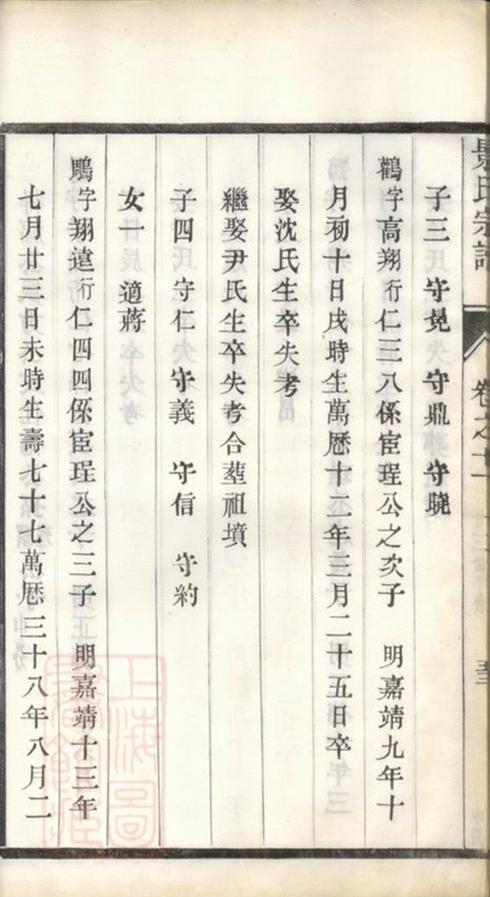 氏宗譜 卷之十
子三 守堯 守鼎 守曉
鸛字高翔行仁三八係宦珵公之次子 明嘉靖九年十
月初十日戌時生萬歷十二年三月二十五日卒
娶沈氏生卒失考
繼娶尹氏生卒失考合塟祖墳
子四 守仁 守義 守信 守約
女一 適蔣
鵰字翔遠行仁四四係宦珵公之三子 明嘉靖十三年
七月廿三日未時生壽七十七萬歷三十八年八月二
上海圖